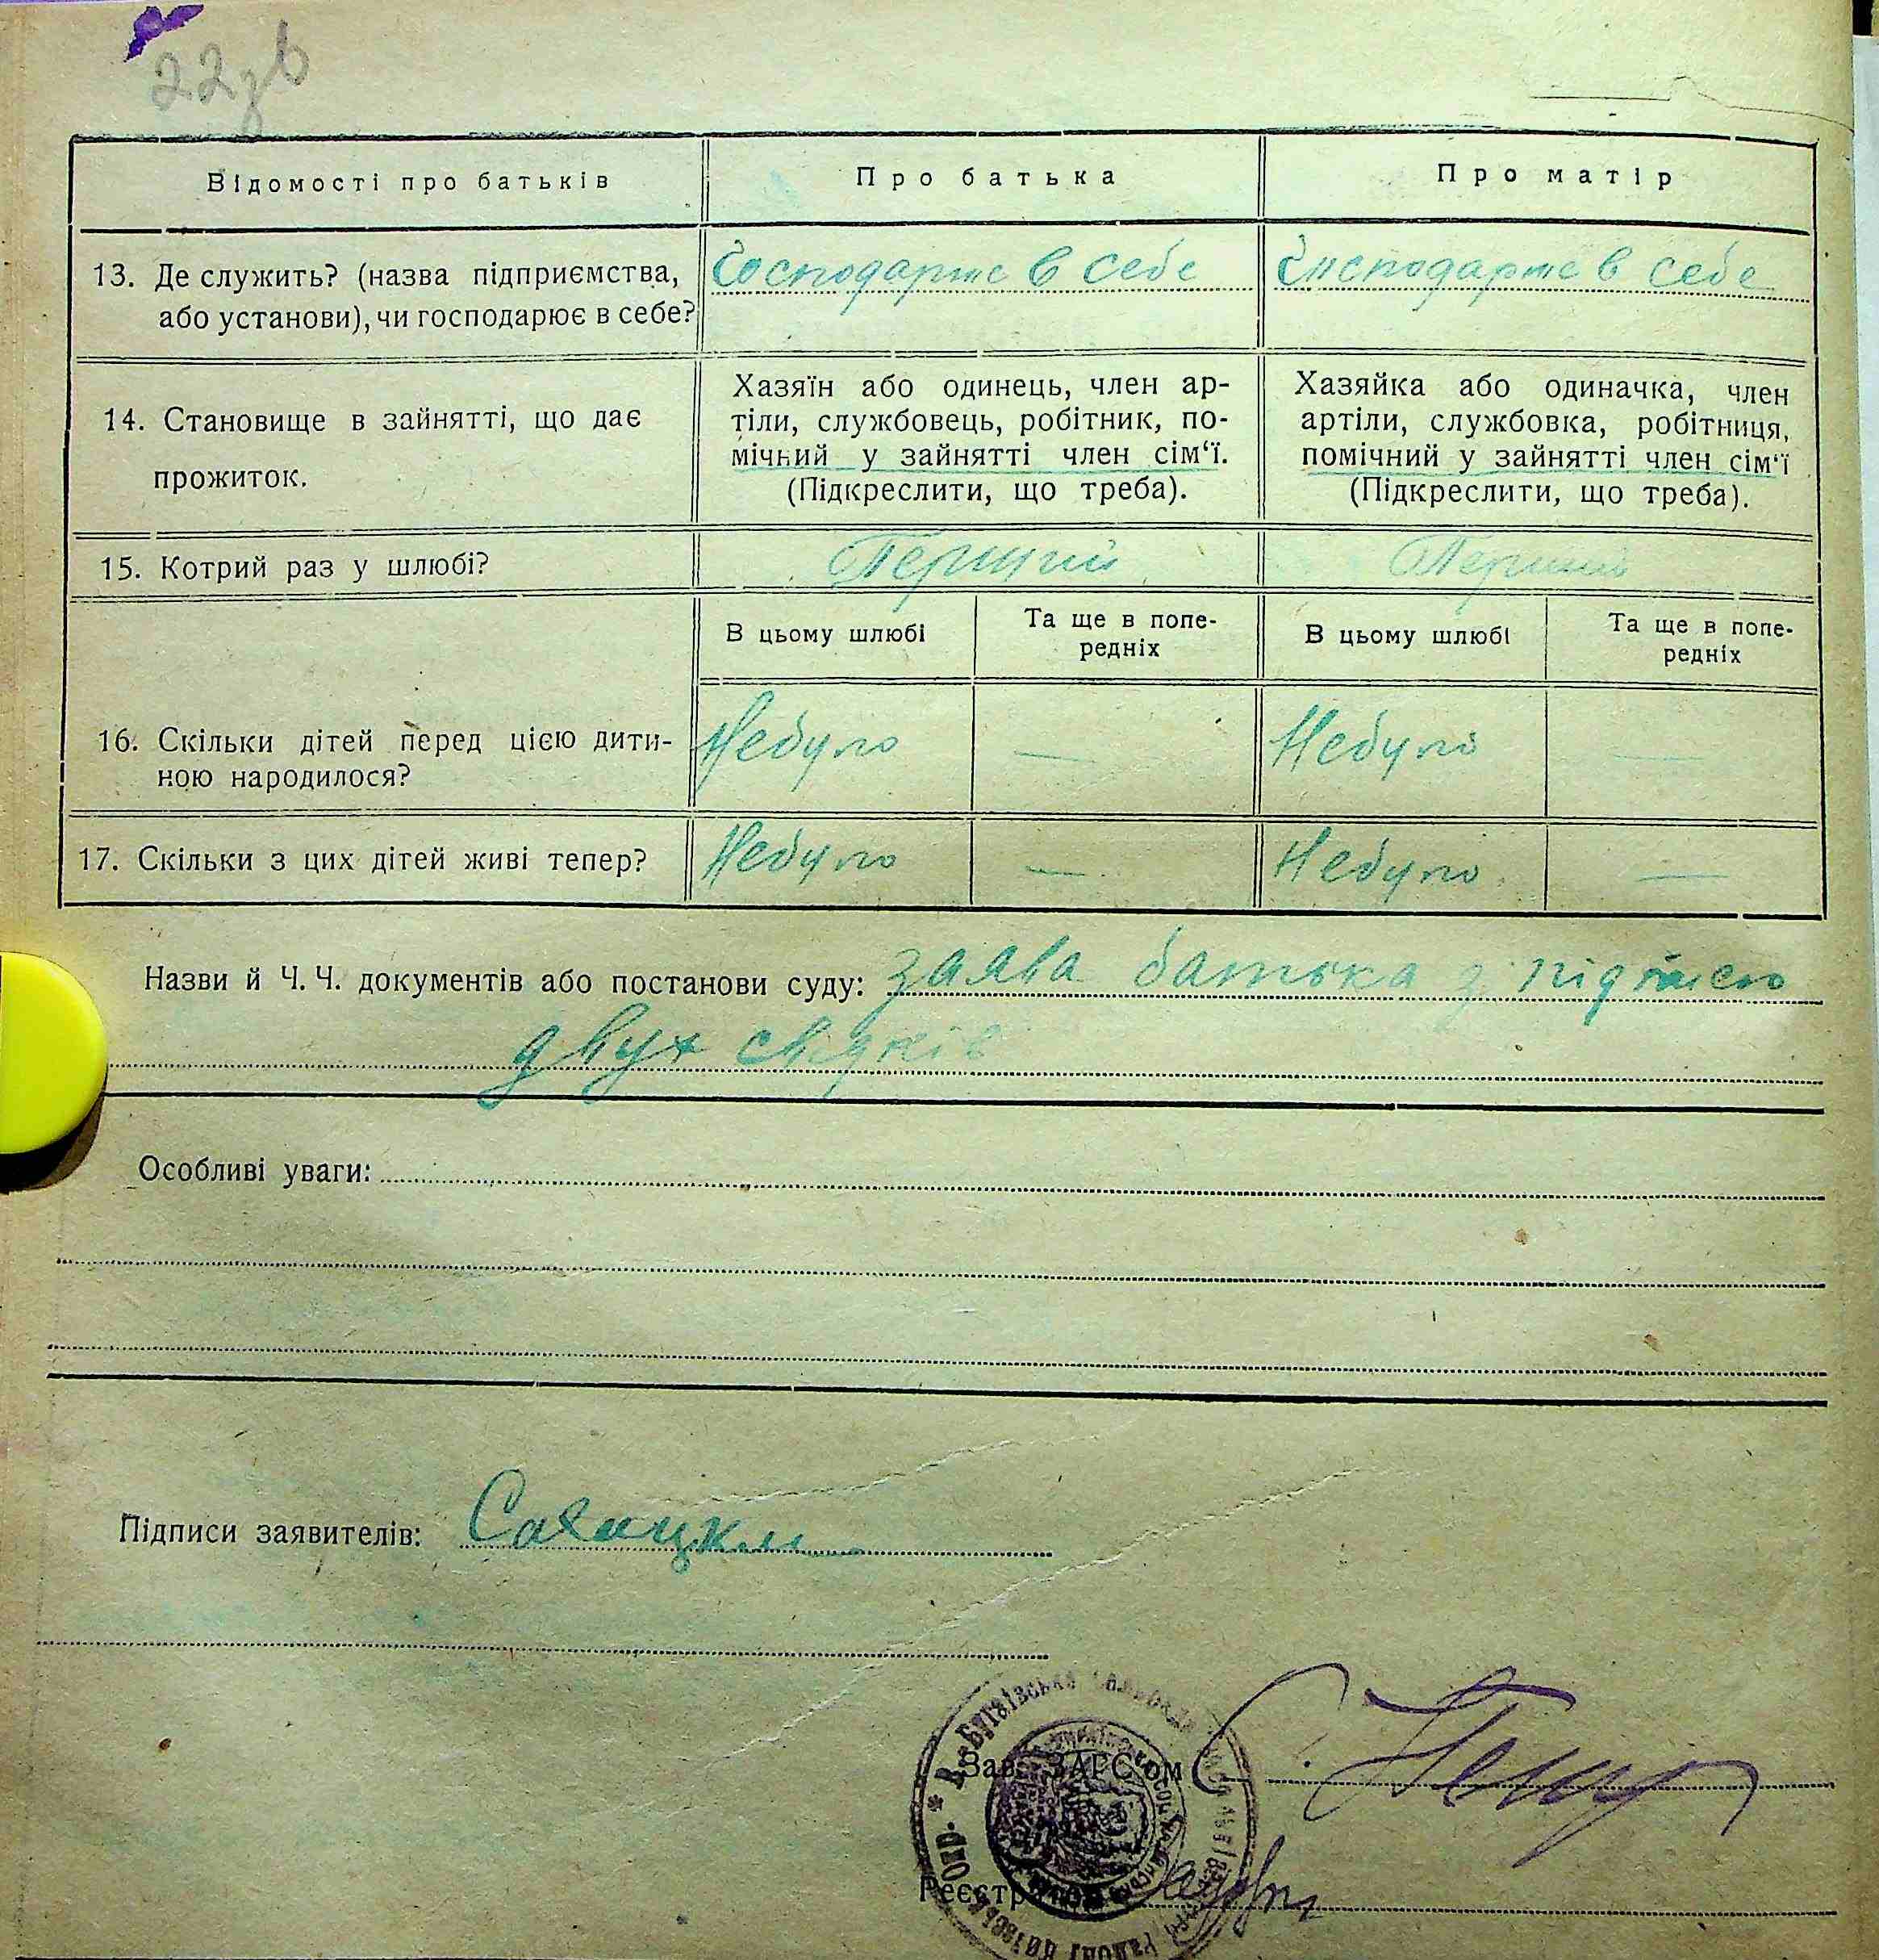 22зв
Відомості про батьків Про батька Про матір
13. Де служить? (назва підприємства, Господарює в себе Господарює в себе
або установи), чи господарює в себе?
Хазяїн або одинець, член ар- Хазяйка або одиначка, член
14. Становище в зайнятті, що дає тіли, службовець, робітник, по- артіли, службовка, робітниця,
мічний у зайнятті член сім‘ї. помічний у зайнятті член сім‘ї
прожиток. (Підкреслити, що треба). (Підкреслити, що треба).
15. Котрий раз у шлюбі? Перший Перший
В цьому шлюбі Та ще в попе- В цьому шлюбі Та ще в попе-
редніх редніх
16. Скільки дітей перед цією дити- Небуло — Небуло —
ною народилося?
17. Скільки з цих дітей живі тепер? Небуло — Небуло —
Назви й Ч. Ч. документів або постанови суду: заява батька з підписю
двух свідків
Особливі уваги:
Підписи заявителів:
Зав. ЗАГС‘ом
Реєстратор